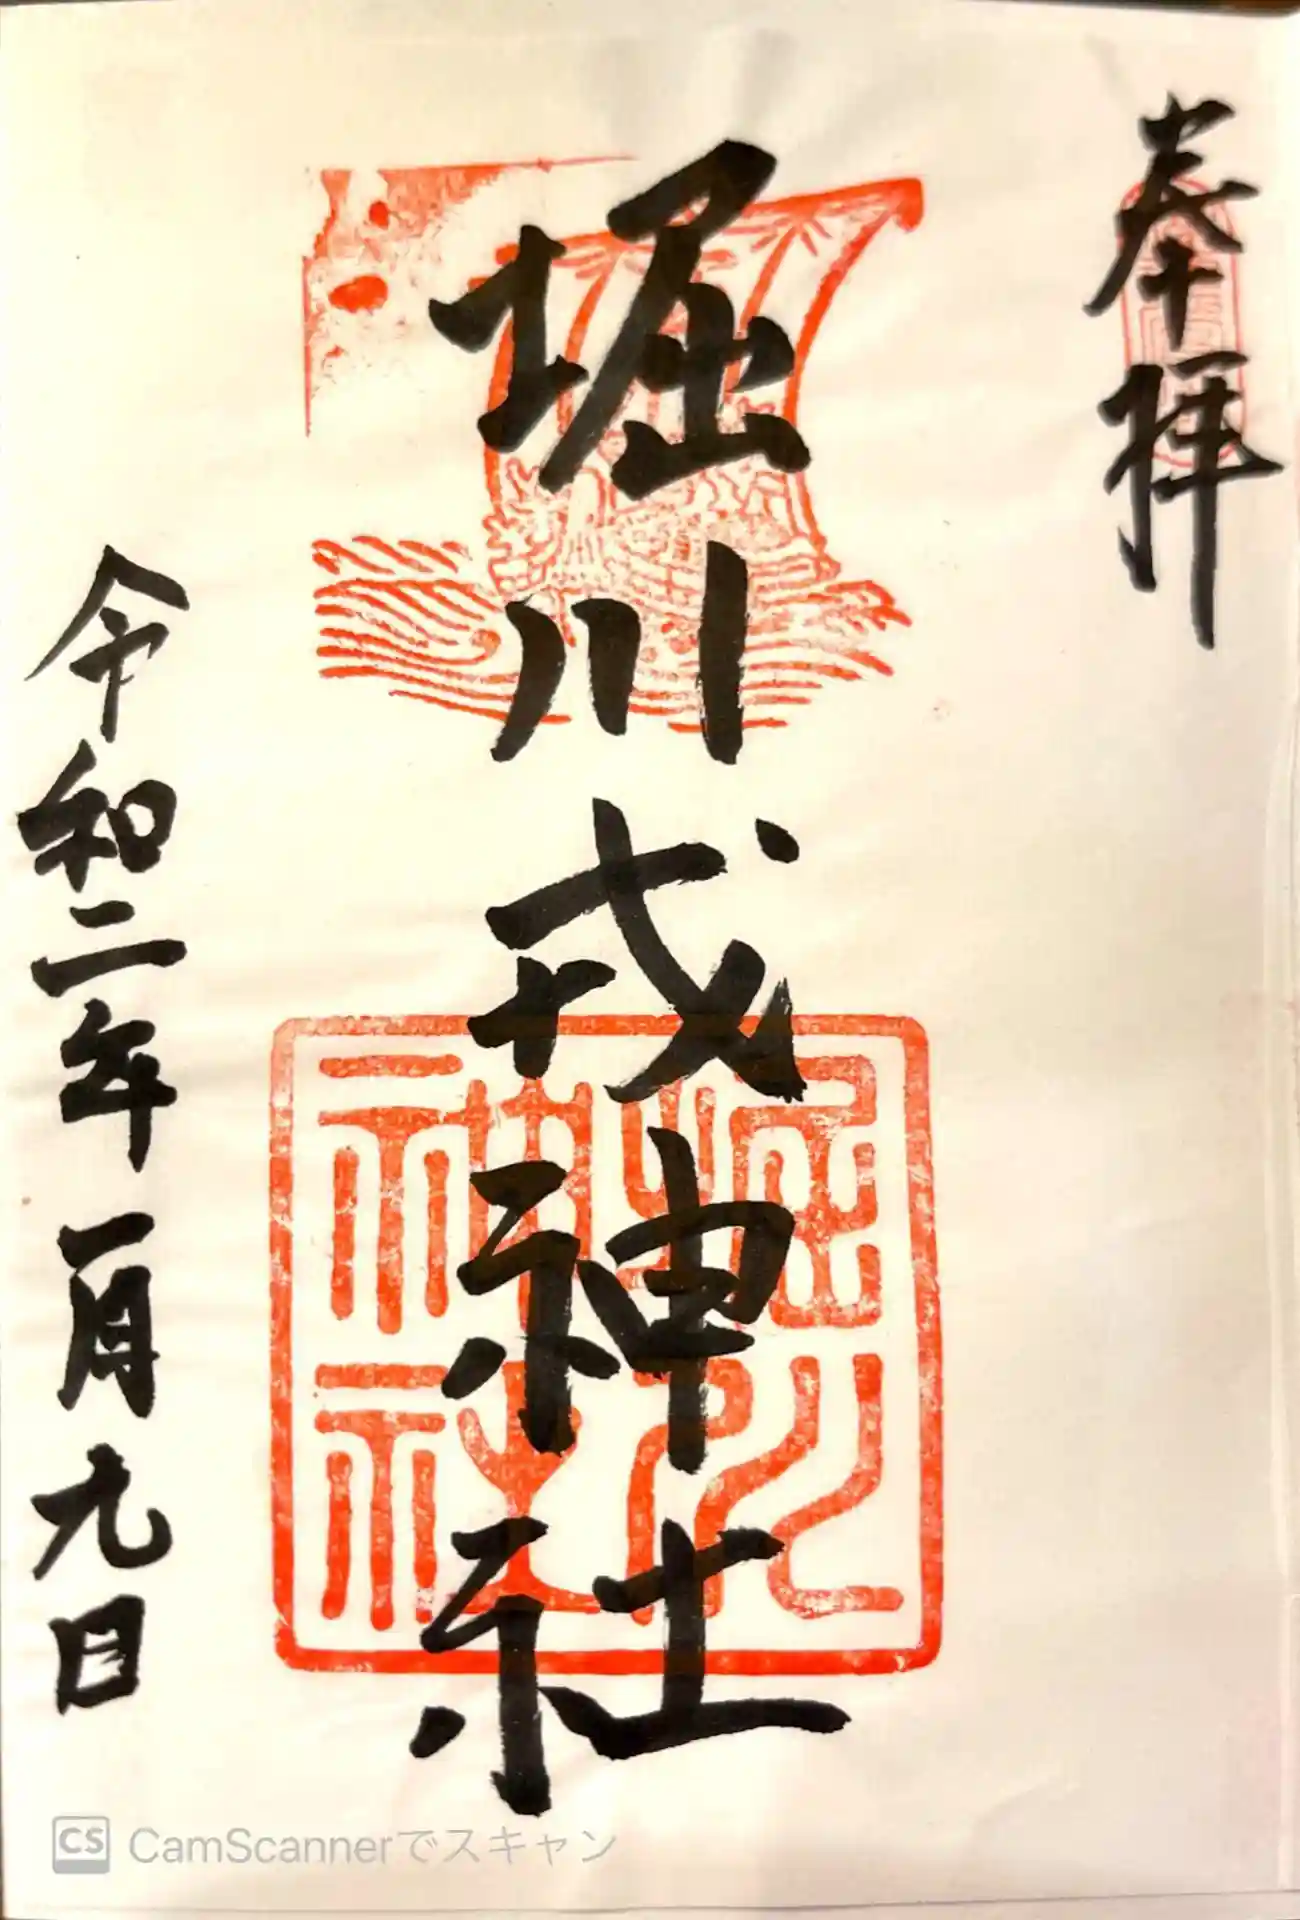 奉拝
堀川戎神社
堀川
神社
令和二年一月九日
CS CamScannerでスキャン